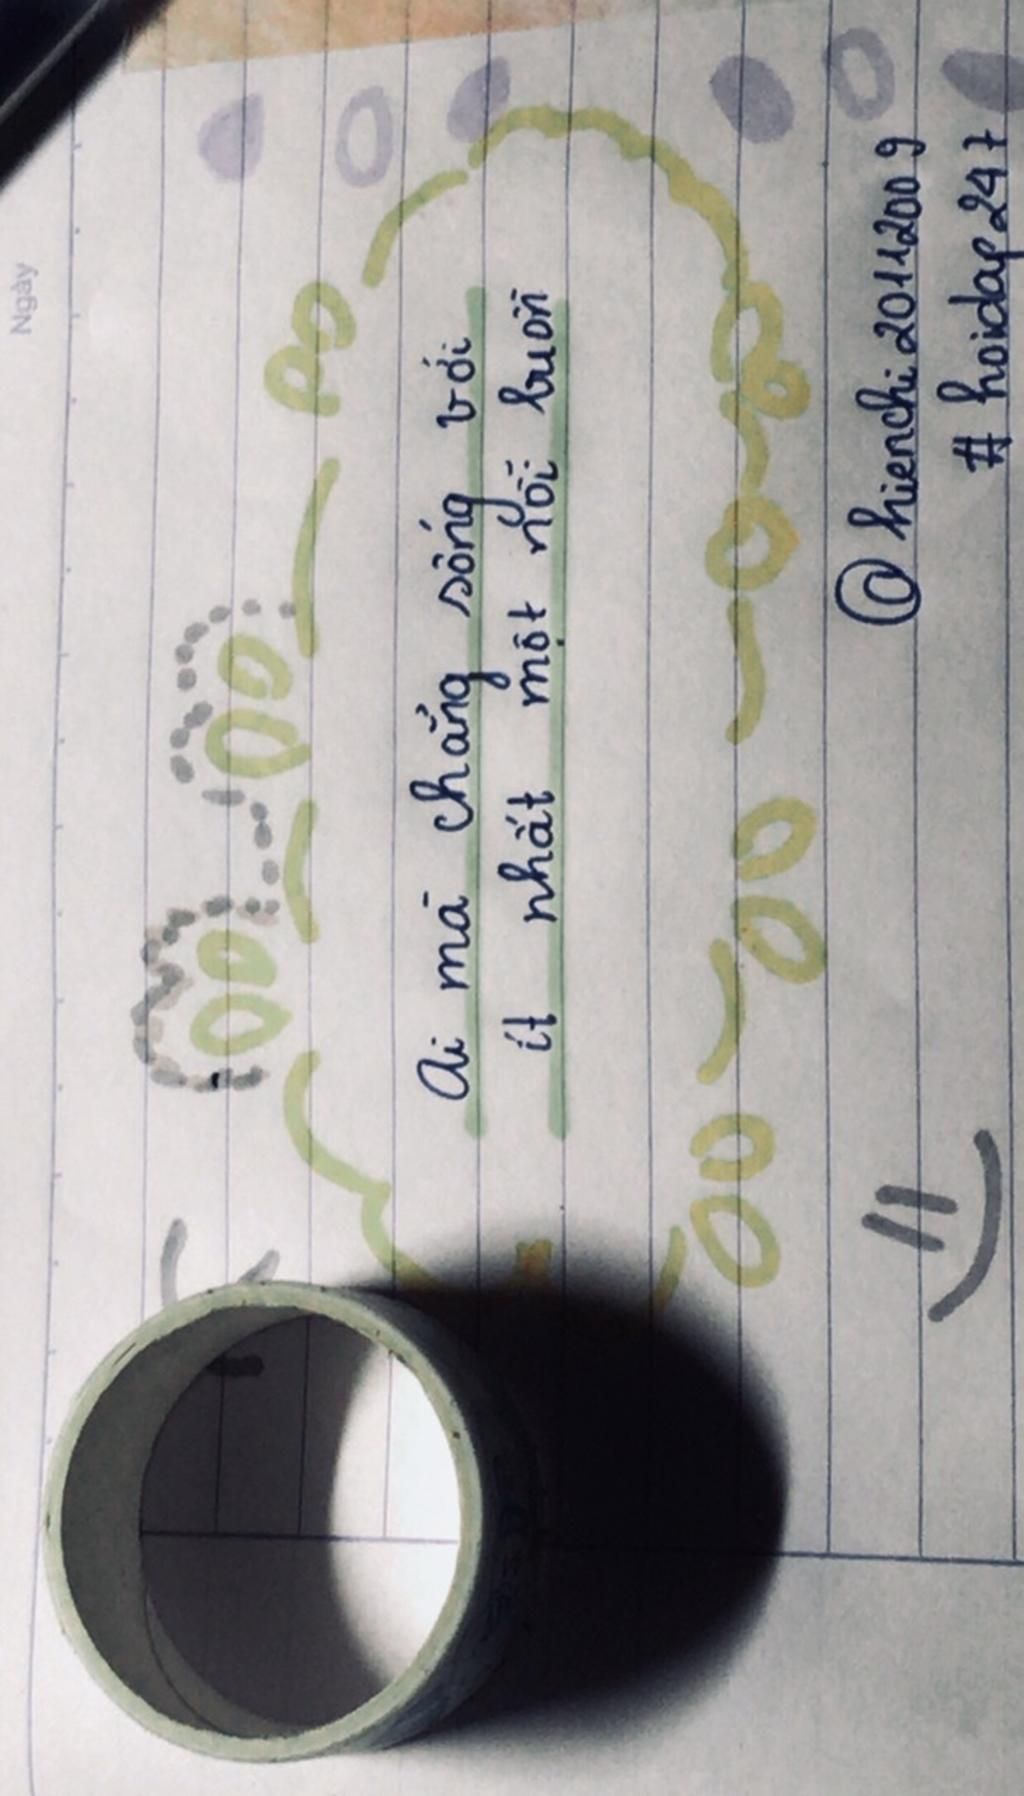 Ngày
Ai mà chẳng sống với
ít nhất một nỗi buồn
@hienchi20112009
# hoidap247